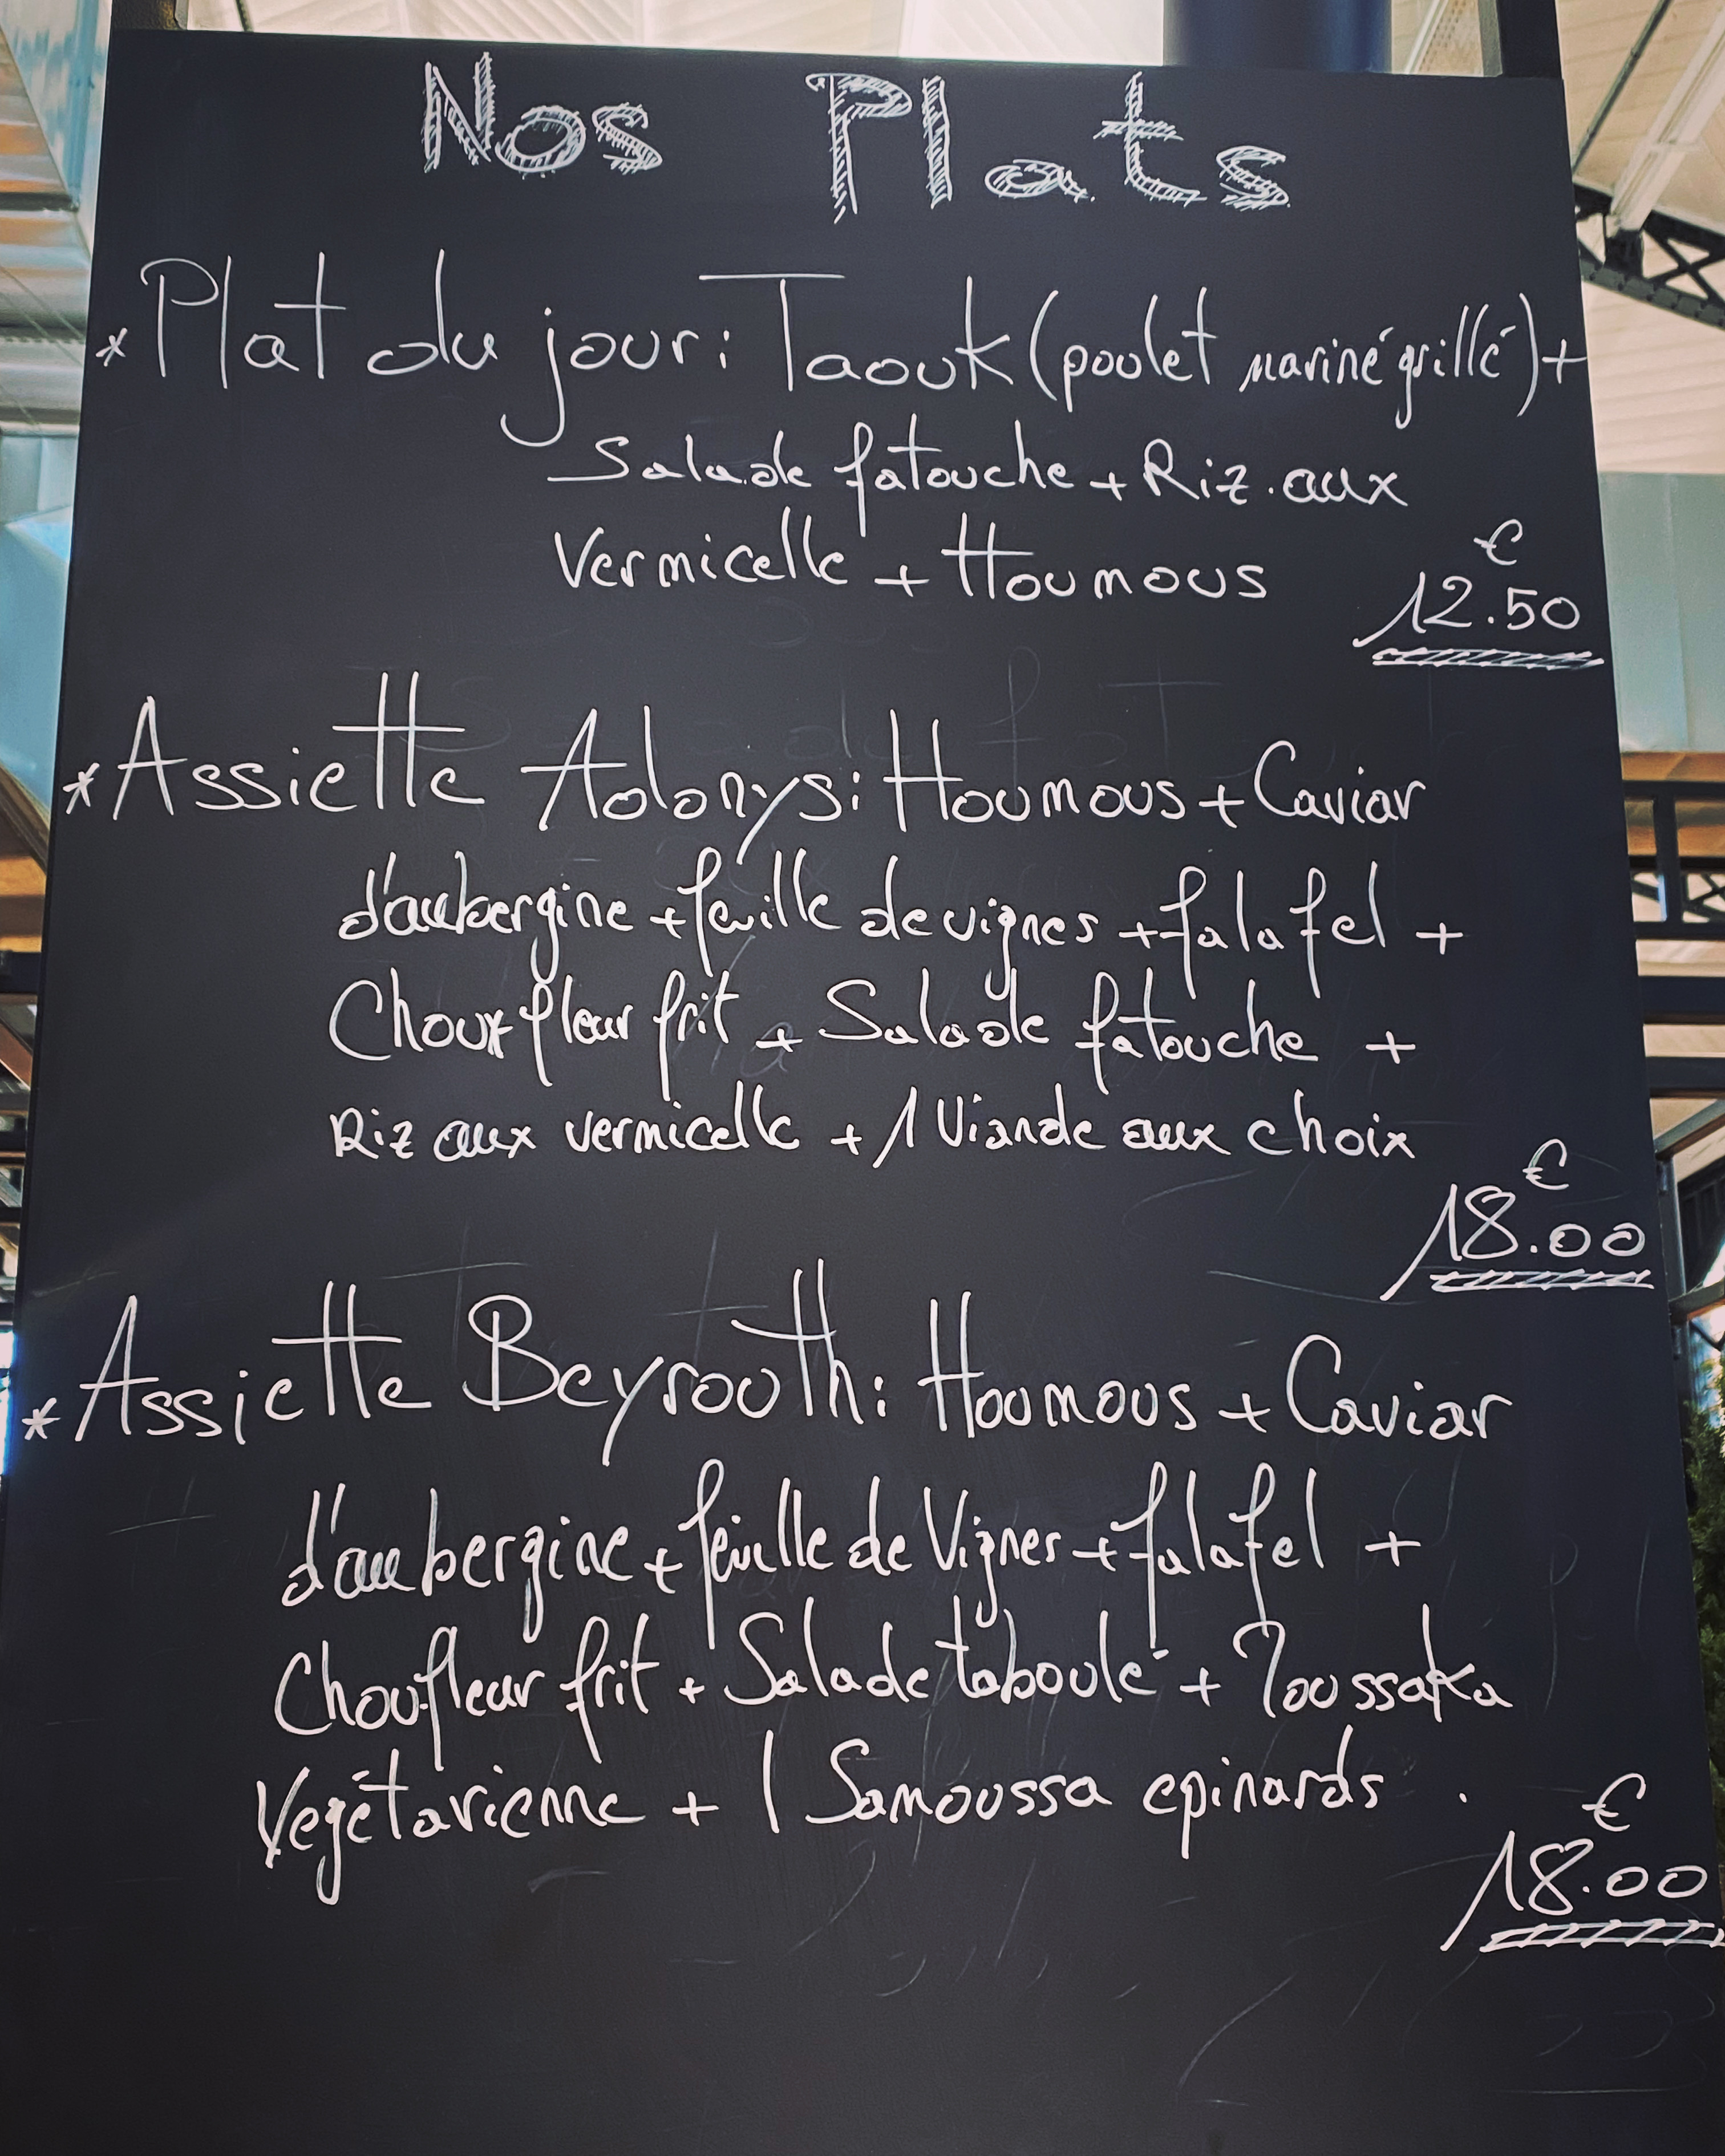 Nos Plats
* Plat du jour: Taouk (poulet mariné grillé) +
Salade fatouche + Riz aux
Vermicelle + Houmous
€
12.50
* Assiette Adonys: Houmous + Caviar
d'aubergine + feuille de vignes + falafel +
Chouxfleur frit + Salade fatouche +
Riz aux vermicelle + 1 Viande aux choix
€
18.00
* Assiette Beyrouth: Houmous + Caviar
d'aubergine + feuille de Vignes + falafel +
Choufleur frit + Salade taboulé + Moussaka
Vegétarienne + 1 Samoussa epinards .
€
18.00